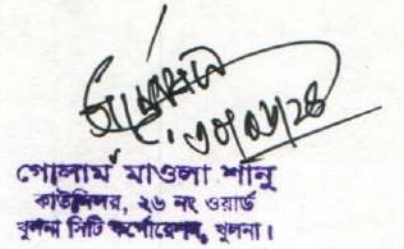 গোলাম মাওলা শানু
কাউন্সিলর, ২৬ নং ওয়ার্ড
খুলনা সিটি কর্পোরেশন, খুলনা।